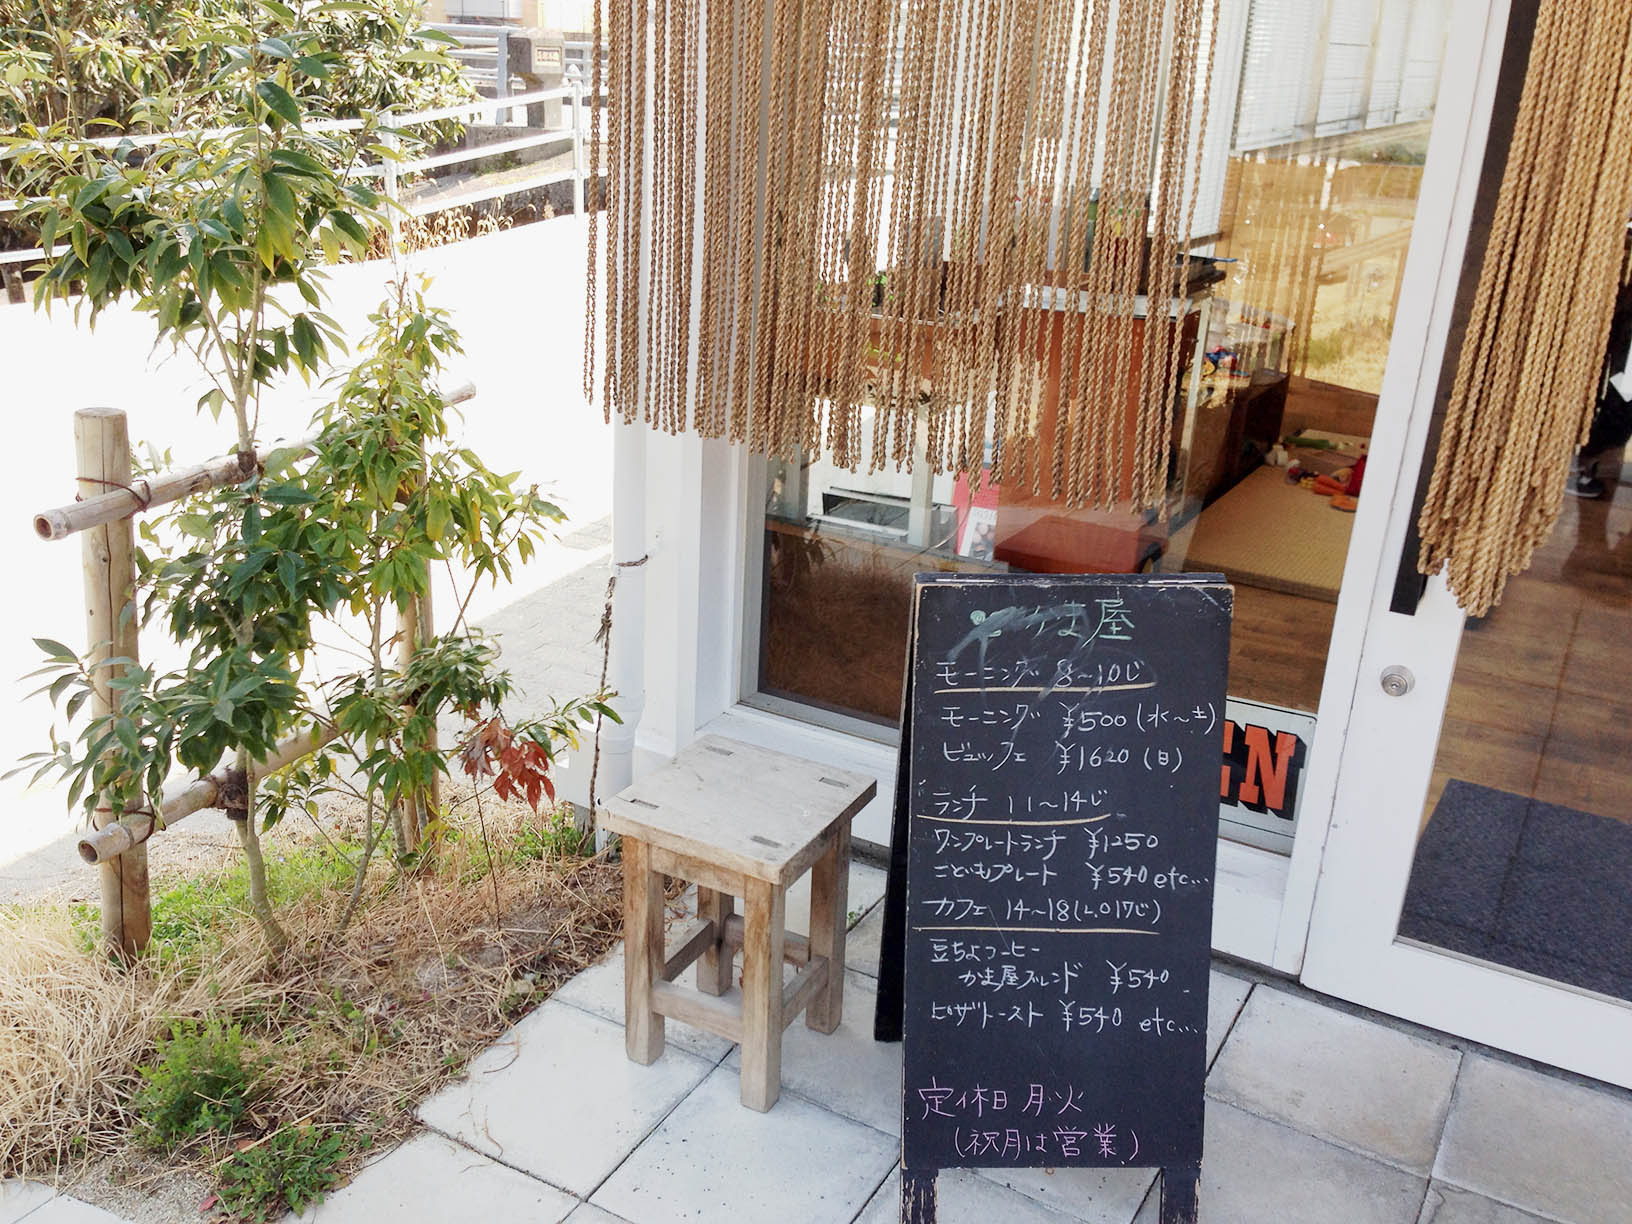 かま屋
モーニング 8~10じ
モーニング ¥500(水~土)
ビュッフェ ¥1620(日)
ランチ 11~14じ
ワンプレートランチ ¥1250
こどもプレート ¥540 etc...
カフェ 14~18(L.O17じ)
豆ちよコーヒー
かま屋ブレンド ¥540
ピザトースト ¥540 etc...
定休日 月・火
(祝月は営業)
EN